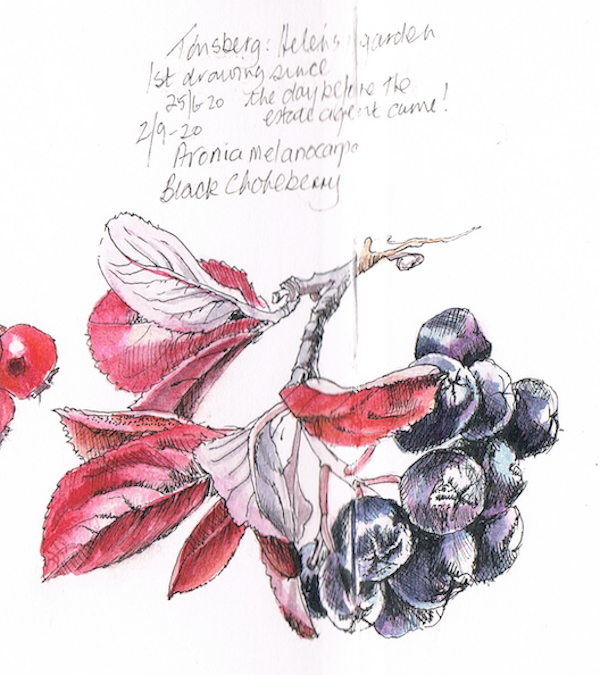 Tønsberg: Helen's garden
1st drawing since
25/6-20 the day before the
estate agent came!
2/9-20
Aronia melanocarpa
Black Chokeberry